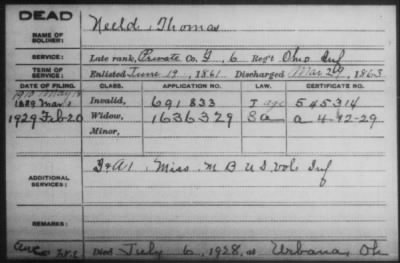 DEAD
NAME OF SOLDIER: Neeld, Thomas
SERVICE: Late rank, Private Co. G, 6 Reg't Ohio Inf
TERM OF SERVICE: Enlisted June 19, 1861 Discharged Mar 24, 1863
DATE OF FILING. CLASS. APPLICATION NO. LAW. CERTIFICATE NO.
1889 Mar 1 Invalid, 691 833 J age 545314
1929 Feb 20 Widow, 1636329 a 4-42-29
Minor,
ADDITIONAL SERVICES: Miss. M B U S Vols Inf
REMARKS:
Died July 6, 1928, at Urbana, Oh